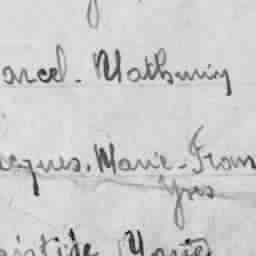 arcel. Mathurin
acques. Marie-Fran
Yves
istide Marie